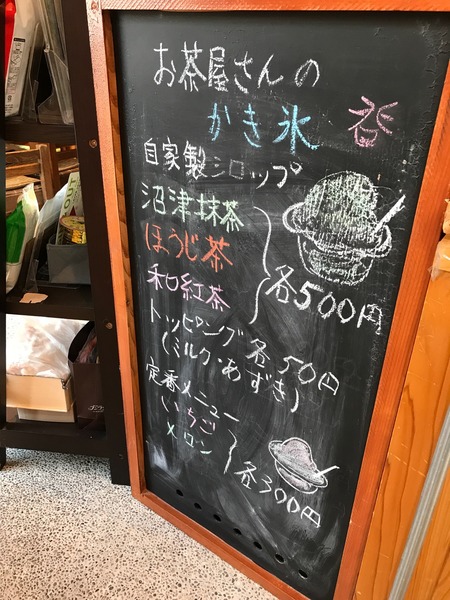 お茶屋さんの
かき氷
自家製シロップ
沼津抹茶
ほうじ茶
和紅茶
各500円
トッピング各50円
(ミルク・あずき)
定番メニュー
いちご
メロン
各300円